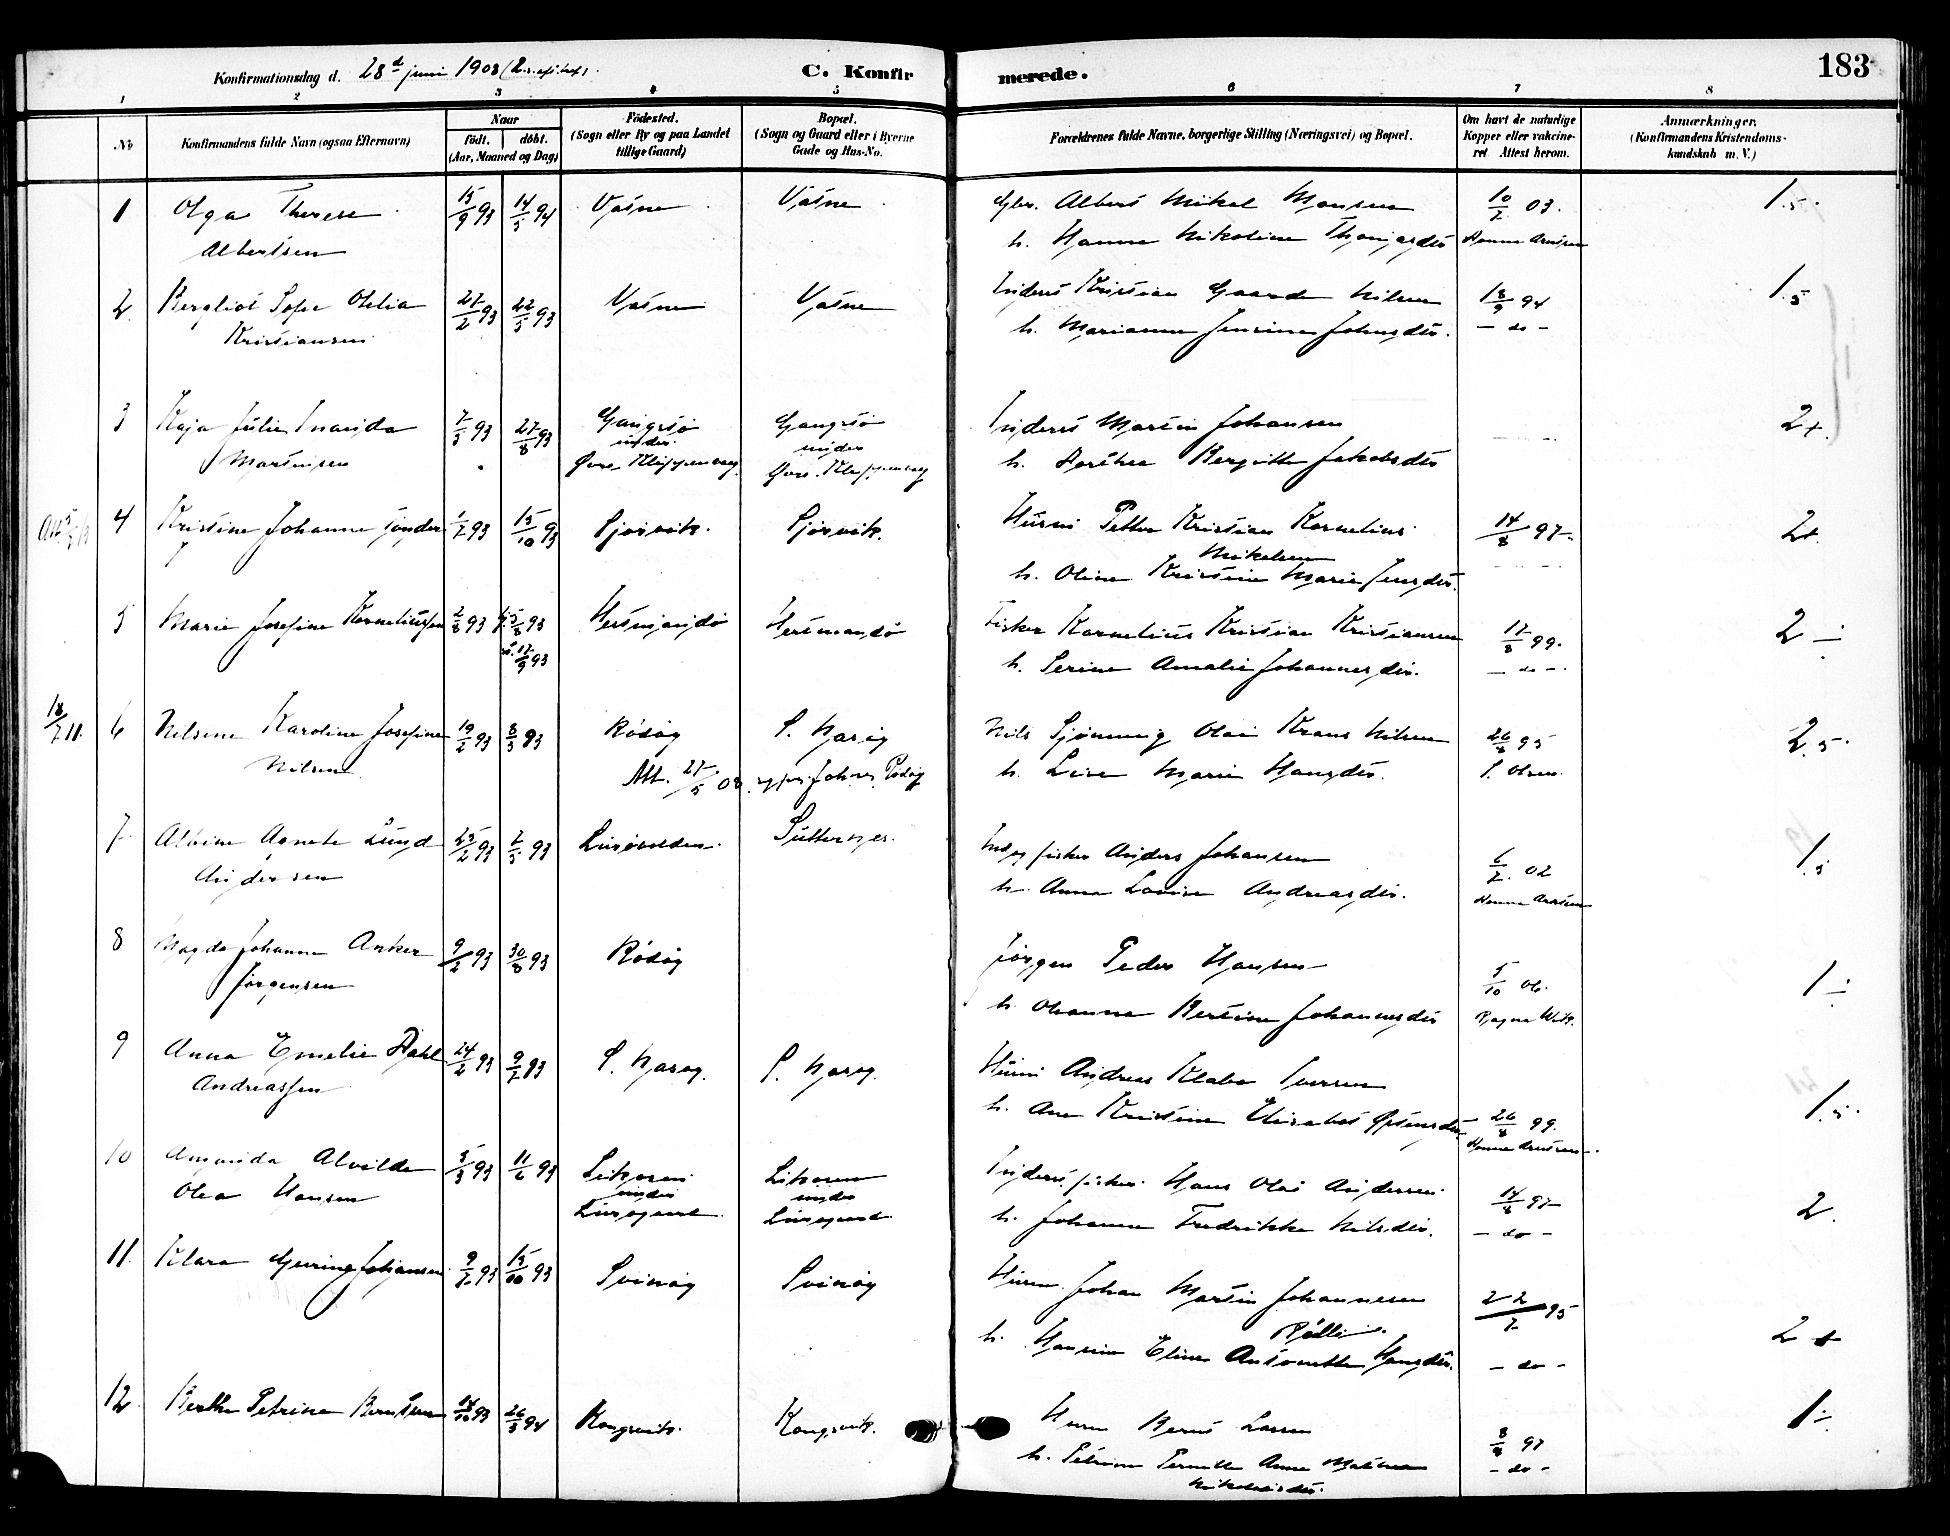 183
Konfirmationsdag d. 28d juni 1908 (2 s. e. f. tref.).
C. Konfirmerede.
1 2 3 4 5 6 7 8
No
Konfirmandens fulde Navn (ogsaa Efternavn)
Naar
født. døbt.
(Aar, Maaned og Dag)
Fødested.
(Sogn eller By og paa Landet
tillige Gaard)
Bopæl.
(Sogn og Gaard eller i Byerne
Gade og Hus-No.
Forældrenes fulde Navne, borgerlige Stilling (Næringsvei) og Bopæl.
Om havt de naturlige
Kopper eller vakcine-
ret Attest herom.
Anmærkninger.
(Konfirmandens Kristendoms-
kundskab m. V.)
1 Olga Therese 15/9 93 14/5 94 Vatne Vatne Gbr. Albert Mikal Monsen 10/7 03. 1.5.
Albertsen h. Hanna Nikoline Thomasdtr Hanna Arntsen
2 Bergliot Sofie Otelia 27/2 93 22/5 93 Vatne Vatne Inderst Kristian Gaarde Nilsen 18/9 94 1.5
Kristiansen h. Marianne Jensine Johnsdtr. — do —
3 Kaja Julie Amanda 7/3 93 27/8 93 Gangsø Gangsø Inderst Martin Johansen 2+.
Martinsen under under h. Dorthea Bergitte Jakobsdtr
Øvre Klippenvaag. Øvre Klippenvaag
4 Kristine Johanne 1/7 93 15/10 93 Sjørvik. Sjørvik. Husm Petter Kristian Kornelius 14/8 97. 2+.
Mikelsen
h. Oline Kristine Marie Jensdtr.
5 Marie Josefine Korneliussen 2/8 93 5/8 93 Hestmandø Hestmandø Fisker Kornelius Kristian Kristiansen 17/8 99. 2 ÷
17/9 93 h. Serine Amalie Johannesdtr. — do —
18/7 11. 6 Nilsine Karoline Josefine 19/2 93 8/3 93 Rødøy S. Nasøy Nils Sjønning Olai Krans Nilsen 26/8 95 2.5.
Nilsen Att. 27/5 08 h. Lise Marie Hansdtr. P. Olsen.
7 Albine Agnete Lund 25/2 93 7/5 93 Lurøvolden. Sutternes. Indr. fisker Anders Johansen 6/7. 02 1.5
Andersen h. Anna Lovise Andreasdtr. Hanna Arntsen
8 Magda Johanna Anker 9/2 93 30/8 93 Rødøy Jørgen Peder Hansen 5/10 06. 1 ÷
Jørgensen h. Ohanna Bertine Johannesdtr
9 Anna Emelie Dahl 24/2 93 9/7 93 S. Nasøy. S. Nasøy. Husm Andreas Klabo Iversen
Andreassen h. Ane Kristine Elisabet 26/8 99. 1.5.
Hanna Arntsen
10 Amanda Alvilde 5/3 93 11/6 93 Inderst, fisker Hans Olai Andersen 14/8 97 2.
Olea Hansen under under h. Johanna Fredrikke Nilsdtr. — do —
11. Klara Johansen 9/7 93 15/10 93 Svinøy Svinøy Husm. Johan Martin Johannesen 22/7 95 2 +
h. Hansine Eline Antonette Hansdtr. — do —
12. Berthe Petrine Berntsen 14/10 93 26/3 94 Kongsvik. Kongsvik. Husm Bernt Larsen 8/8 97 1 ÷
h. Petrine Pernille Anne — do —
Nikolaisdtr.